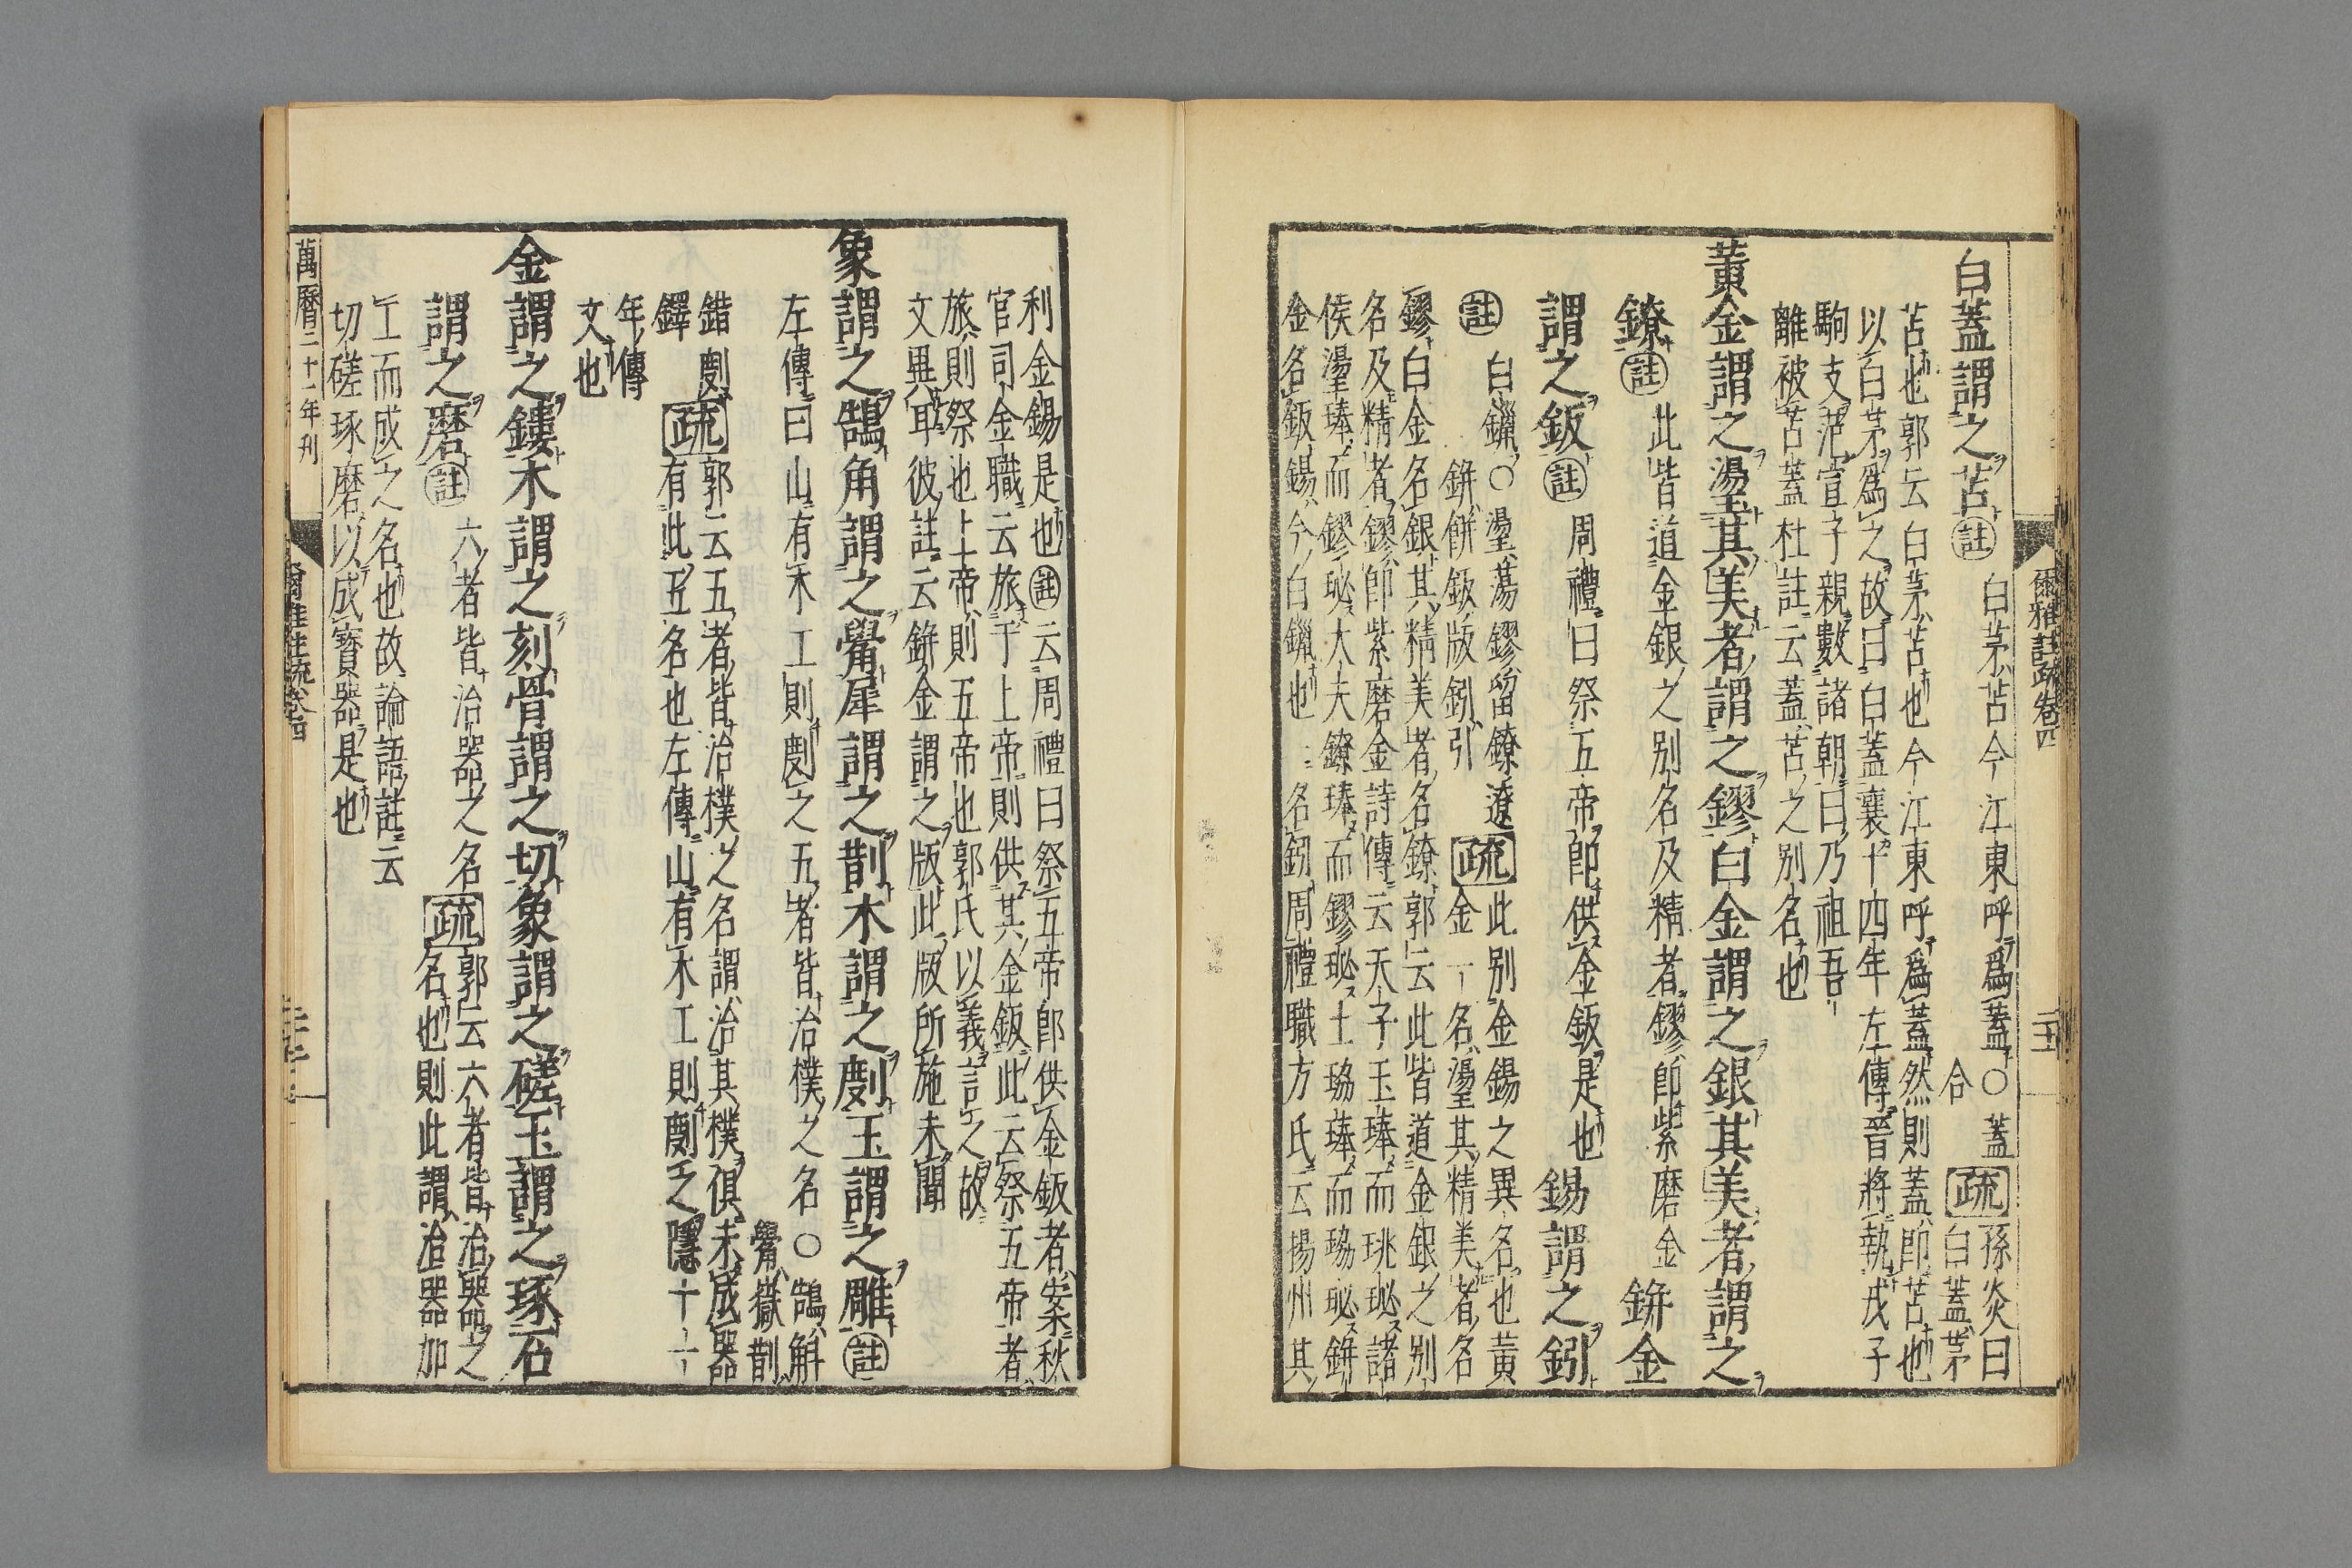 爾雅註疏卷四
白蓋謂之苫註白茅苫今江東呼爲蓋○蓋合疏孫炎曰白蓋茅
苫也郭云白茅苫也今江東呼爲蓋然則蓋即苫也
以白茅爲之故曰白蓋襄十四年左傳晉將執戎子
駒支范宣子親數諸朝曰乃祖吾
離被苫蓋杜註云蓋苫之别名也
黃金謂之璗其美者謂之鏐白金謂之銀其美者謂之
鐐註此皆道金銀之别名及精者鏐即紫磨金鉼金
謂之鈑註周禮曰祭五帝即供金鈑是也錫謂之鈏
註白鑞○璗蕩鏐留鐐遼鉼餅鈑版鈏引疏此别金錫之異名也黃金一名璗其精美者名
鏐白金名銀其精美者名鐐郭云此皆道金銀之别
名及精者鏐即紫磨金詩傳云天子玉琫而珧珌諸
侯璗琫而鏐珌大夫鐐琫而鏐珌士珕琫而珕珌鉼
金名鈑錫今白鑞也一名鈏周禮職方氏云揚州其
利金錫是也註云周禮曰祭五帝即供金鈑者案秋
官司金職云旅于上帝則供其金鈑此云祭五帝者
旅則祭也上帝則五帝也郭氏以義言之故
文異耳彼註云鉼金謂之版此版所施未聞
象謂之鵠角謂之觷犀謂之剒木謂之剫玉謂之雕註
左傳曰山有木工則剫之五者皆治樸之名○鵠斛觷嶽剒
錯剫鐸疏郭云五者皆治樸之名謂治其樸俱未成器有此五名也左傳山有木工則剫之隱十一
年傳
文也
金謂之鏤木謂之刻骨謂之切象謂之磋玉謂之琢石
謂之磨註六者皆治器之名疏郭云六者皆治器之名也則此謂治器加
工而成之名也故論語註云
切磋琢磨以成寶器是也
萬曆二十一年刋
爾雅註疏卷四